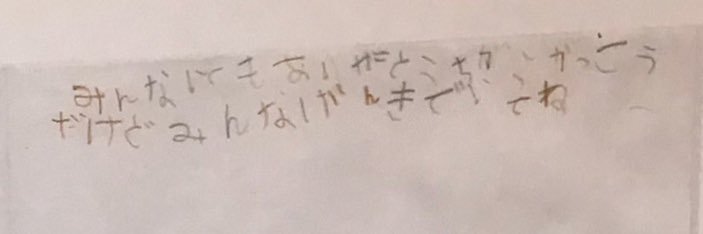 みんないつもありがとうちがうがっこう
だけどみんなげんきでいてね